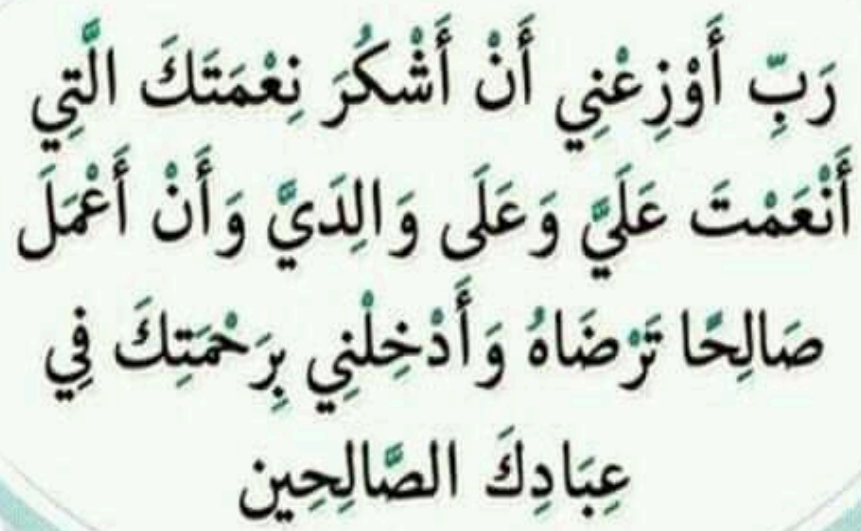 رَبِّ أَوْزِعْنِي أَنْ أَشْكُرَ نِعْمَتَكَ الَّتِي
أَنْعَمْتَ عَلَيَّ وَعَلَى وَالِدَيَّ وَأَنْ أَعْمَلَ
صَالِحًا تَرْضَاهُ وَأَدْخِلْنِي بِرَحْمَتِكَ فِي
عِبَادِكَ الصَّالِحِين